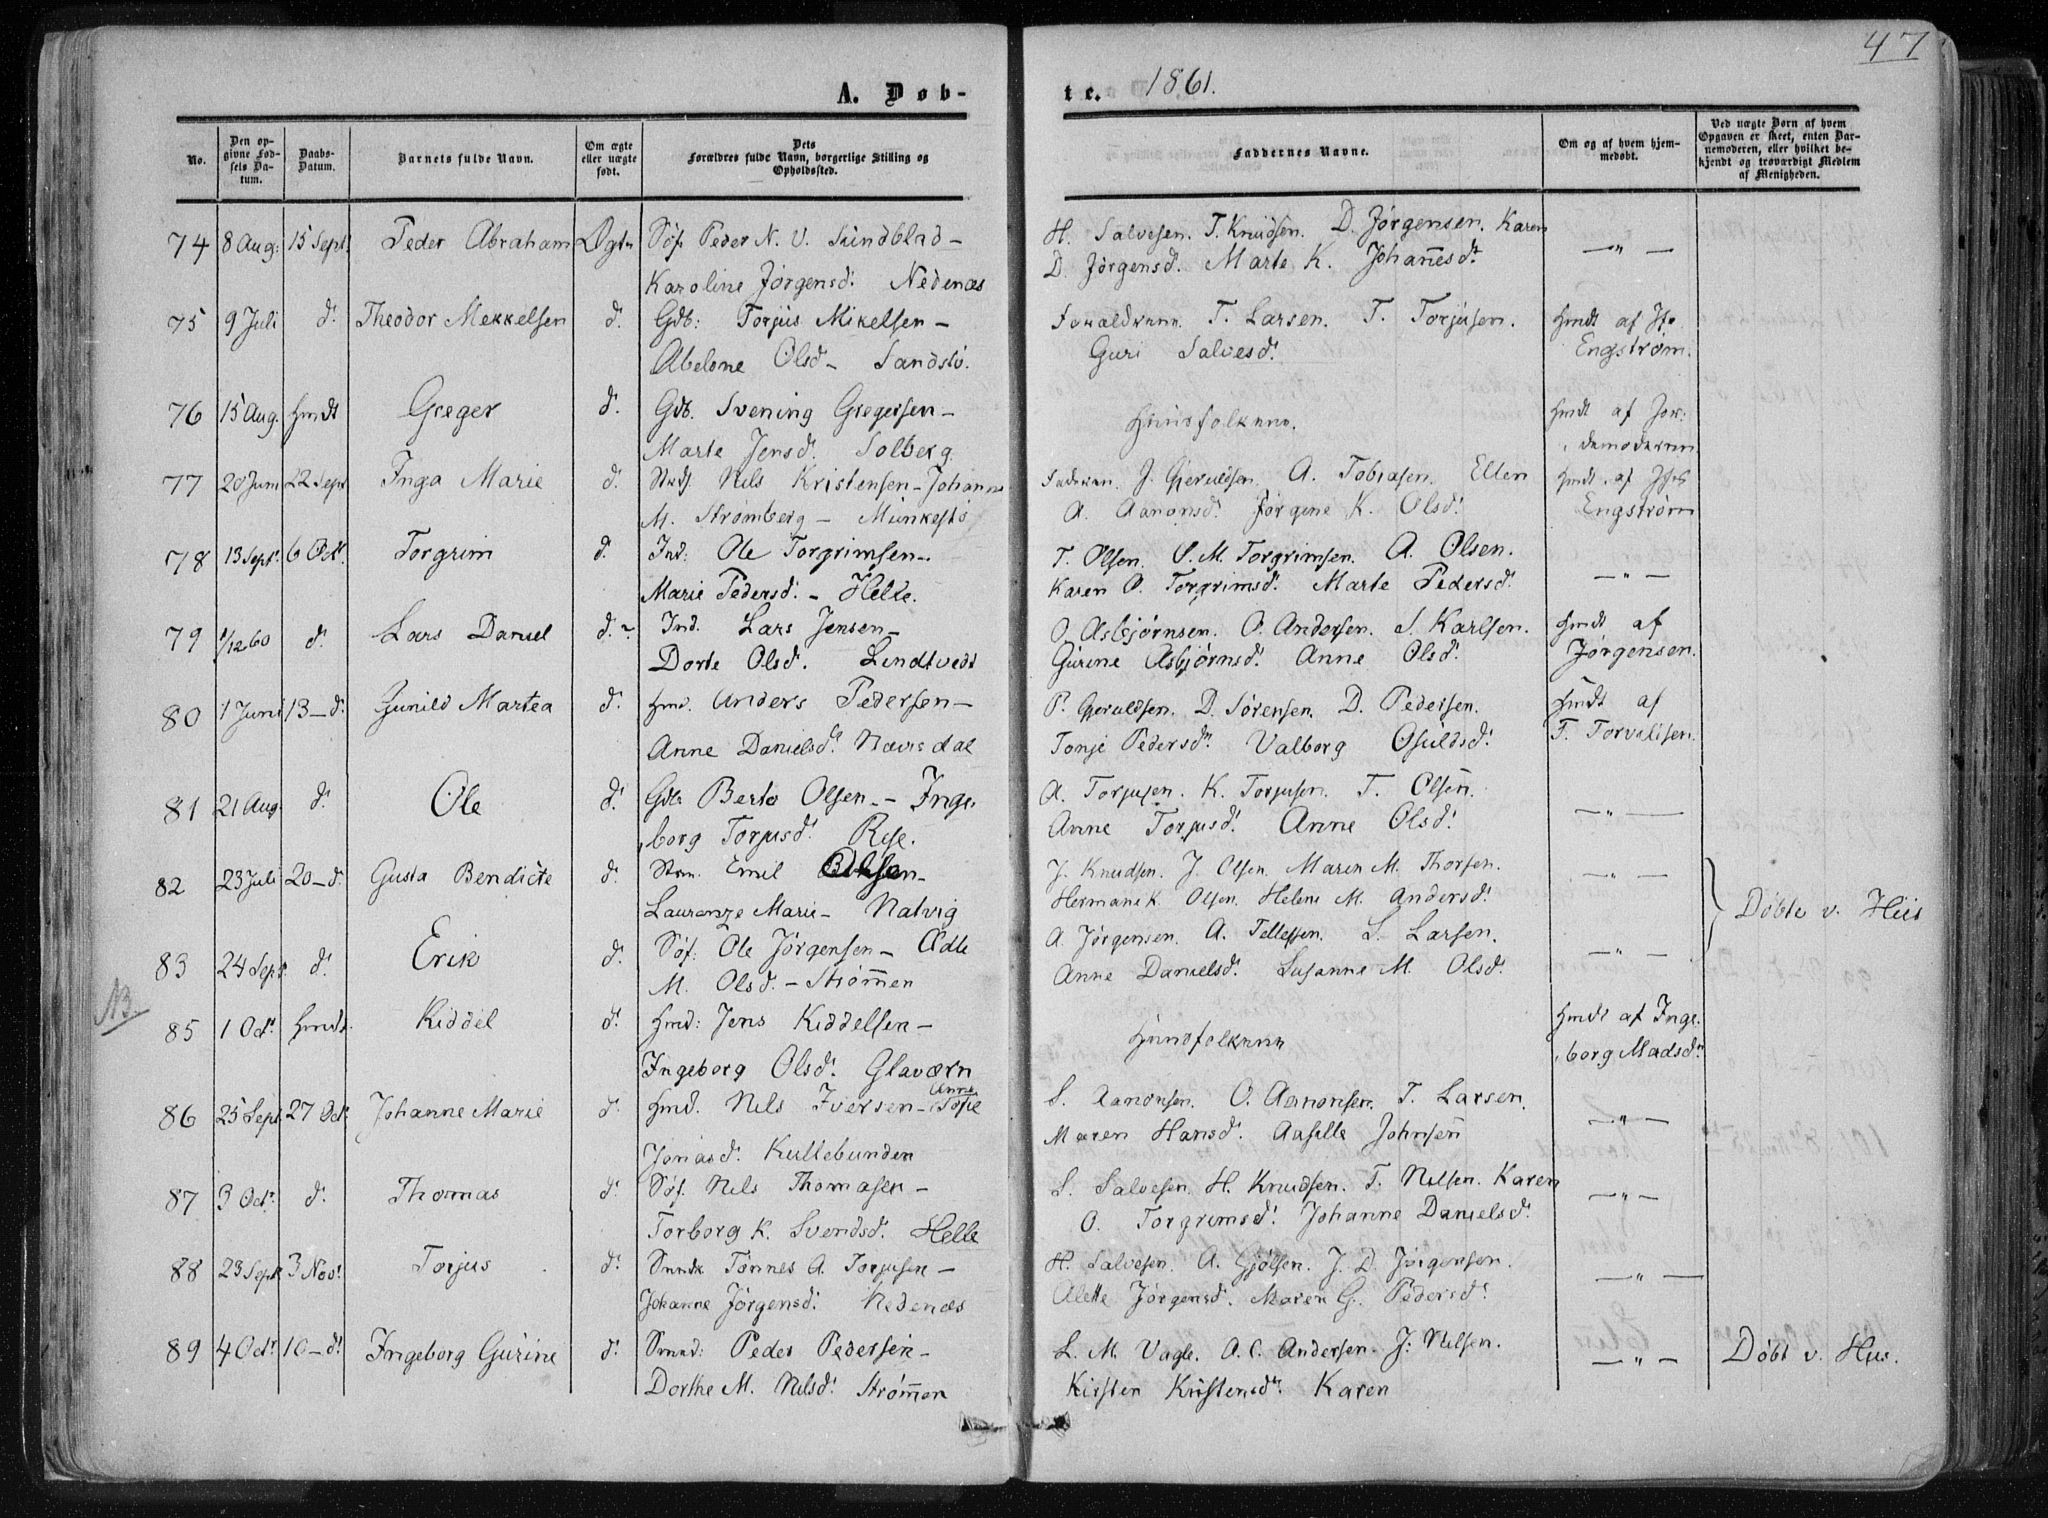 47
A. Døb-
te. 1861.
No.
Den opgivne Fødsels Datum.
Daabs-Datum.
Barnets fulde Navn.
Om ægte eller uægte født.
Dets Forældres fulde Navn, borgerlige Stilling og Opholdssted.
Faddernes Navne.
Om og af hvem hjemmedøbt.
Ved uægte Børn af hvem Opgaven er skeet, enten Barnemoderen, eller hvilket bekjendt og troværdigt Medlem af Menigheden.
74 8 Aug: 15 Sept. Peder Abraham Ægte Søf. Peder N. V. Sundblad –
Karoline Jørgensd. Nedenæs
H. Salvesen. T. Knudsen. D. Jørgensen. Karen
D. Jørgensd. Marte K. Johannesd. —"—
75 9 Juli d. Theodor Mekkelsen d. Gdb: Torjus Mikelsen –
Abelone Olsd – Sandstø.
T. Larsen. T. Torjusen.
Guri Salvesd.
Hmdt af
Engstrøm.
76 15 Aug. Hmdt Greger d. Gdb. Svening Gregersen –
Marte Jensd. Solberg.
Huusfolkene.
Hmdt af Jor-
demoderen
77 20 Juni 22 Sept Inga Marie d. Nils Kristensen – Johanne
M. Strømberg –
Faderen. J. Geruldsen. A. Tobiasen. Ellen
A. Aanonsd. Jørgine K. Olsd.
Hmdt. af
Engstrøm
78 13 Sept. 6 Oct. Torgrim d. Ind: Ole Torgrimsen –
Marie Pedersd. – Helle.
T. Olsen. S. M. Torgrimsen. A. Olsen.
Karen O. Torgrimsd. Marte Pedersd. —"—
79 1/12 60 d. Lars Daniel d. Ind. Lars Jensen –
Dorte Olsd. Lindtvedt
O. Asbjørnsen. O. Andersen. S. Karlsen.
Gurine Asbjørnsd. Anne Olsd.
Hmdt af
Jørgensen.
80 1 Juni 13 – d. Gunild Martea d. Hmd. Anders Pedersen –
Anne Danielsd. Navisdal
P. Geruldsen. D. Sørensen. D. Pedersen.
Tonje Pedersd. Valborg Osuldsd.
Hmdt af
T. Torvildsen.
81 21 Aug d. Ole d. Gdb Berto Olsen – Inge-
borg Torjusd. Rise.
A. Torjusen. K. Torjusen. T. Olsen.
Anne Torjusd. Anne Olsd. —"—
82 23 Juli 20 – d. Gusta Bendicte d. Emil Olsen –
Laurenze Marie – Natvig
J. Knudsen. J. Olsen. Maren M. Thorsen.
Hermane K. Olsen. Helene M. Andersd. —"—
Døbte v. Hus
83 24 Sept. d. Erik d. Søf. Ole Jørgensen – Ædle
M. Olsd. – Strømmen
A. Jørgensen. A. Tellefsen. L. Larsen.
Anne Danielsd. Susanne M. Olsd. —"—
NB.
85 1 Oct. Hmdt. Kiddel d. Hmd: Jens Kiddelsen –
Ingeborg Olsd. Glaværn
Huusfolkene
Hmdt af Inge-
borg Madsd.
86 25 Sept. 27 Oct. Johanne Marie d. Hmd. Nils Iversen – Anne Sofie
Jonasd. Kullebunden
S. Aanonsen. O. Aanonsen. T. Larsen.
Maren Hansd. Aasille Johnsen —"—
87 3 Oct. d. Thomas d. Søf. Nils Thomasen –
Torborg K. Svendsd. Helle
S. Salvesen. H. Knudsen. T. Nilsen. Karen
O. Torgrimsd. Johanne Danielsd. —"—
88 23 Sept 3 Nov. Torjus d. Tønnes A. Torjusen –
Johanne Jørgensd. Nedenæs
H. Salvesen. A. Gjølsen. J. D. Jørgensen.
Alette Jørgensd. Maren G. Pedersd. —"—
89 4 Oct. 10 – d. Ingeborg Gurine d. Peder Pedersen –
Dorthe M. Nilsd. Strømmen
L. M. Vagle. A. C. Andersen. J. Nilsen.
Kirsten Kristensd. Karen —"—
Døbt v. Hus.